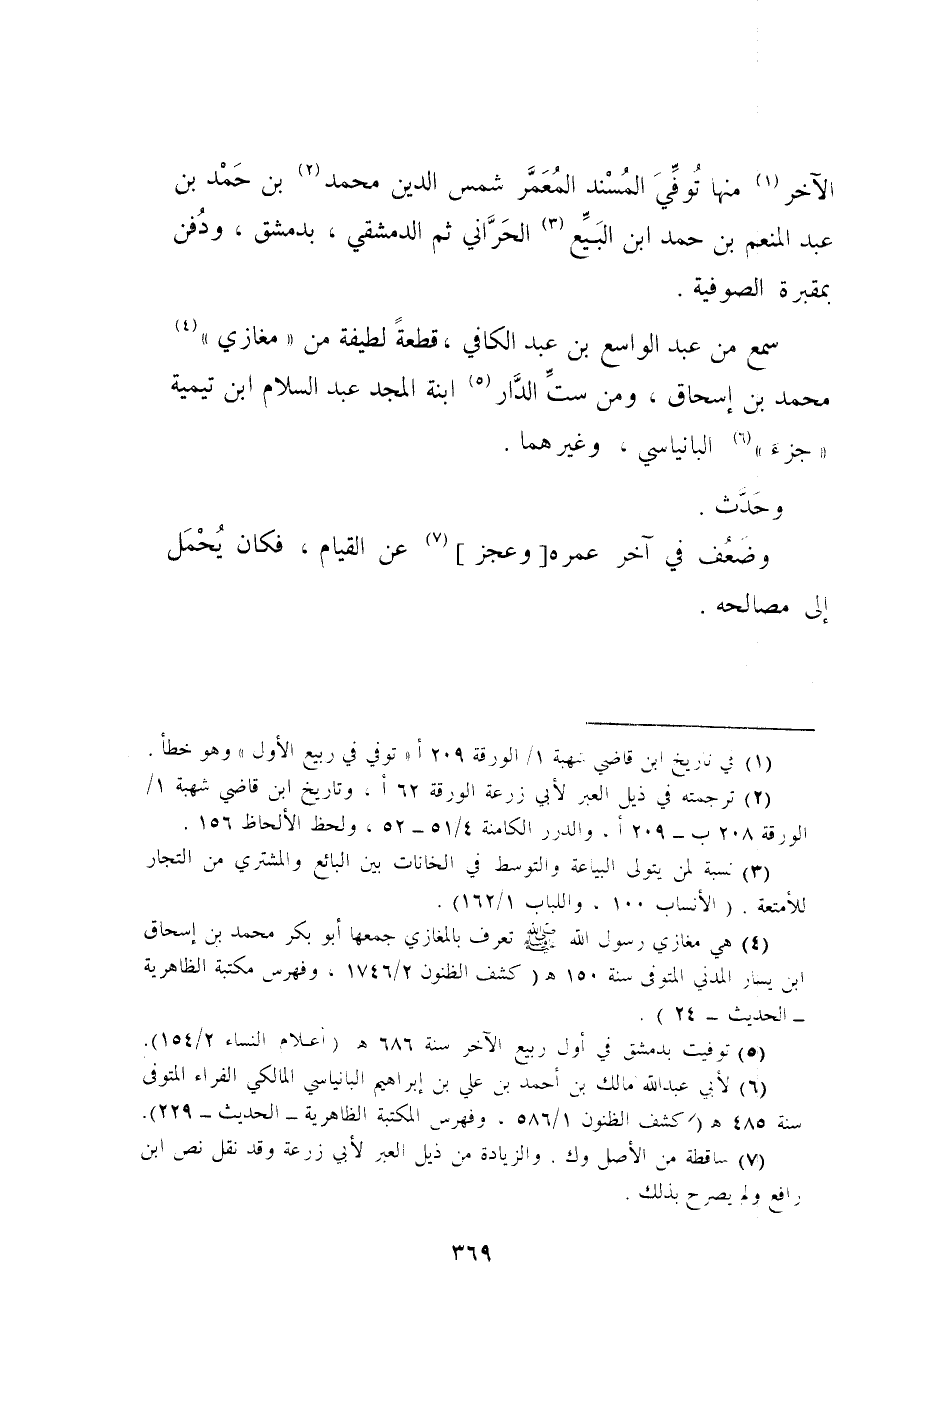 الآخر (١) منها تُوفِّيَ المُسْند المُعَمَّر شمس الدين محمد (٢) بن حَمْد بن
عبد المنعم بن حمد ابن البَيِّع (٣) الحَرَّاني ثم الدمشقي ، بدمشق ، ودُفن
بمقبرة الصوفية .
سمع من عبد الواسع بن عبد الكافي ، قطعةً لطيفة من « مغازي » (٤)
محمد بن إسحاق ، ومن ستِّ الدَّار (٥) ابنة المجد عبد السلام ابن تيمية
« جزء » (٦) البانياسي ، وغيرهما .
وحَدَّث .
وضَعُف في آخر عمره [ وعجز ] (٧) عن القيام ، فكان يُحْمَل
إلى مصالحه .
(١) في تاريخ ابن قاضي شهبة ١/ الورقة ٢٠٩ أ « توفي في ربيع الأول » وهو خطأ .
(٢) ترجمته في ذيل العبر لأبي زرعة الورقة ٦٢ أ ، وتاريخ ابن قاضي شهبة ١/
الورقة ٢٠٨ ب ـ ٢٠٩ أ . والدرر الكامنة ٤/٥١ ـ ٥٢ ، ولحظ الألحاظ ١٥٦ .
(٣) نسبة لمن يتولى البياعة والتوسط في الخانات بين البائع والمشتري من التجار
للأمتعة . ( الأنساب ١٠٠ . واللباب ١/١٦٢) .
(٤) هي مغازي رسول الله ﷺ تعرف بالمغازي جمعها أبو بكر محمد بن إسحاق
ابن يسار المدني المتوفى سنة ١٥٠ هـ ( كشف الظنون ٢/١٧٤٦ ، وفهرس مكتبة الظاهرية
ـ الحديث ـ ٢٤ ) .
(٥) توفيت بدمشق في أول ربيع الآخر سنة ٦٨٦ هـ ( أعلام النساء ٢/١٥٤).
(٦) لأبي عبدالله مالك بن أحمد بن علي بن إبراهيم البانياسي المالكي الفراء المتوفى
سنة ٤٨٥ هـ ( كشف الظنون ١/٥٨٦ . وفهرس المكتبة الظاهرية ـ الحديث ـ ٢٢٩).
(٧) ساقطة من الأصل وك . والزيادة من ذيل العبر لأبي زرعة وقد نقل نص ابن
رافع ولم يصرح بذلك .
٣٦٩